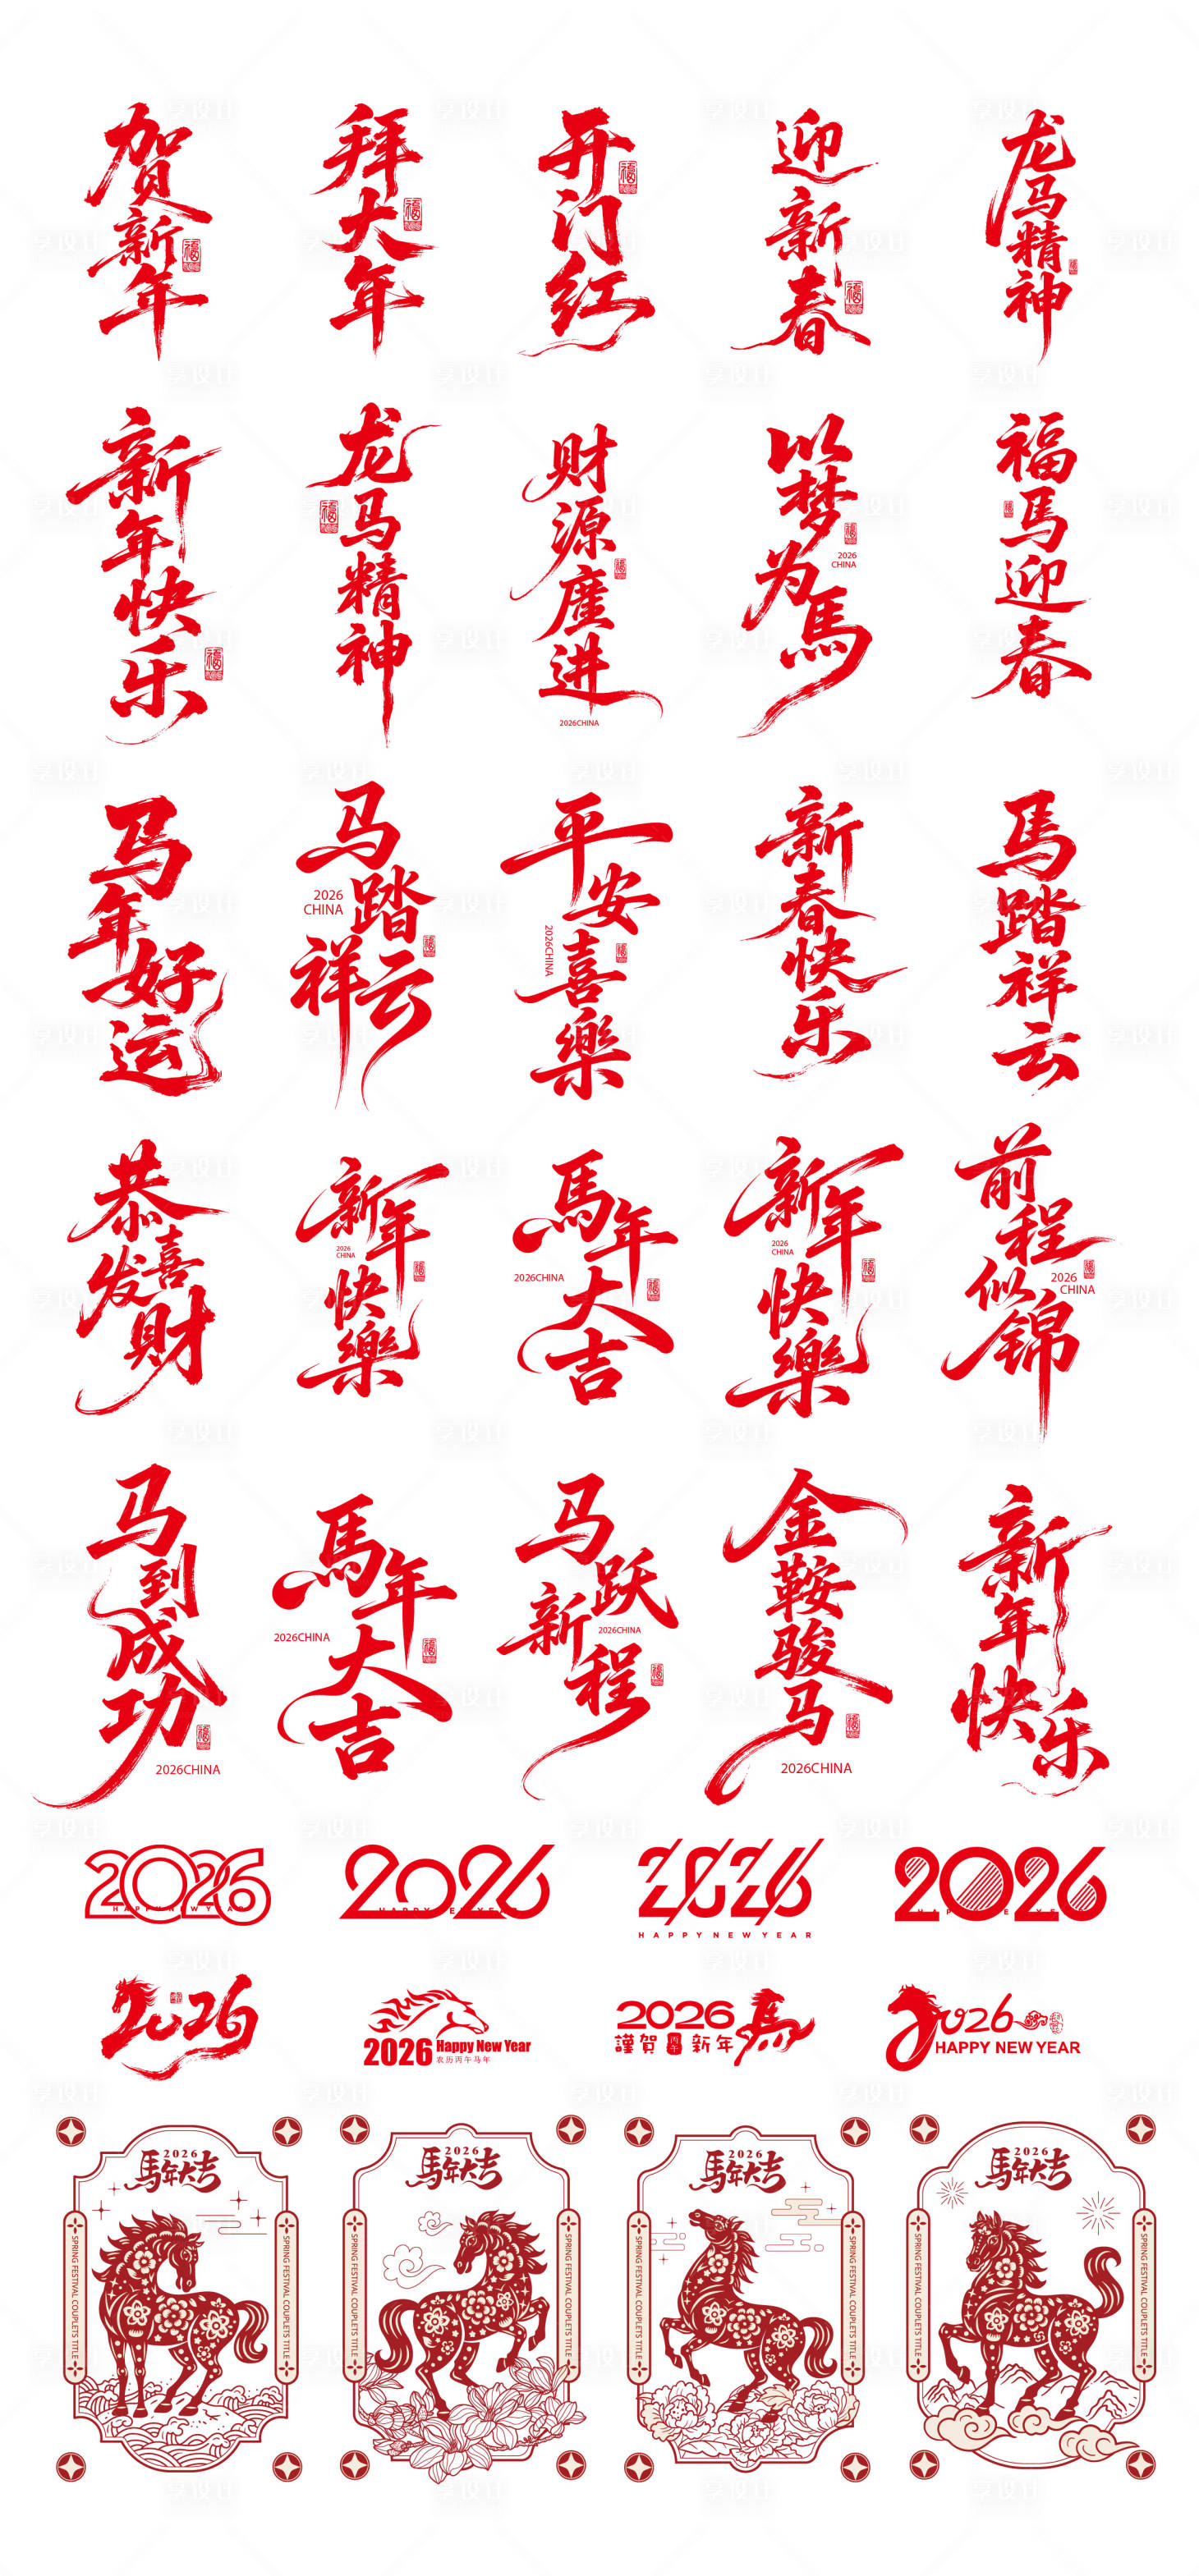 贺新年
福
拜大年
福
开门红
福
迎新春
福
龙马精神
福
新年快乐
福
龙马精神
福
财源廑进
福
2026CHINA
以梦为馬
福
2026
CHINA
福馬迎春
福
马年好运
马踏祥云
2026
CHINA
福
平安喜樂
2026CHINA
福
新春快乐
馬踏祥云
恭喜发財
新年快樂
2026
CHINA
福
馬年大吉
2026CHINA
福
新年快樂
2026
CHINA
福
前程似锦
福
2026
CHINA
马到成功
福
2026CHINA
馬年大吉
2026CHINA
福
马跃新程
2026CHINA
福
金鞍骏马
福
2026CHINA
新年快乐
2026
HAPPY NEW YEAR
2026
2026
HAPPY NEW YEAR
2026
2026
2026 Happy New Year
农历丙午马年
2026 馬
謹賀丙午新年
2026
HAPPY NEW YEAR
2026
馬年大吉
SPRING FESTIVAL COUPLETS TITLE
SPRING FESTIVAL COUPLETS TITLE
2026
馬年大吉
SPRING FESTIVAL COUPLETS TITLE
SPRING FESTIVAL COUPLETS TITLE
2026
馬年大吉
SPRING FESTIVAL COUPLETS TITLE
SPRING FESTIVAL COUPLETS TITLE
2026
馬年大吉
SPRING FESTIVAL COUPLETS TITLE
SPRING FESTIVAL COUPLETS TITLE
享设计